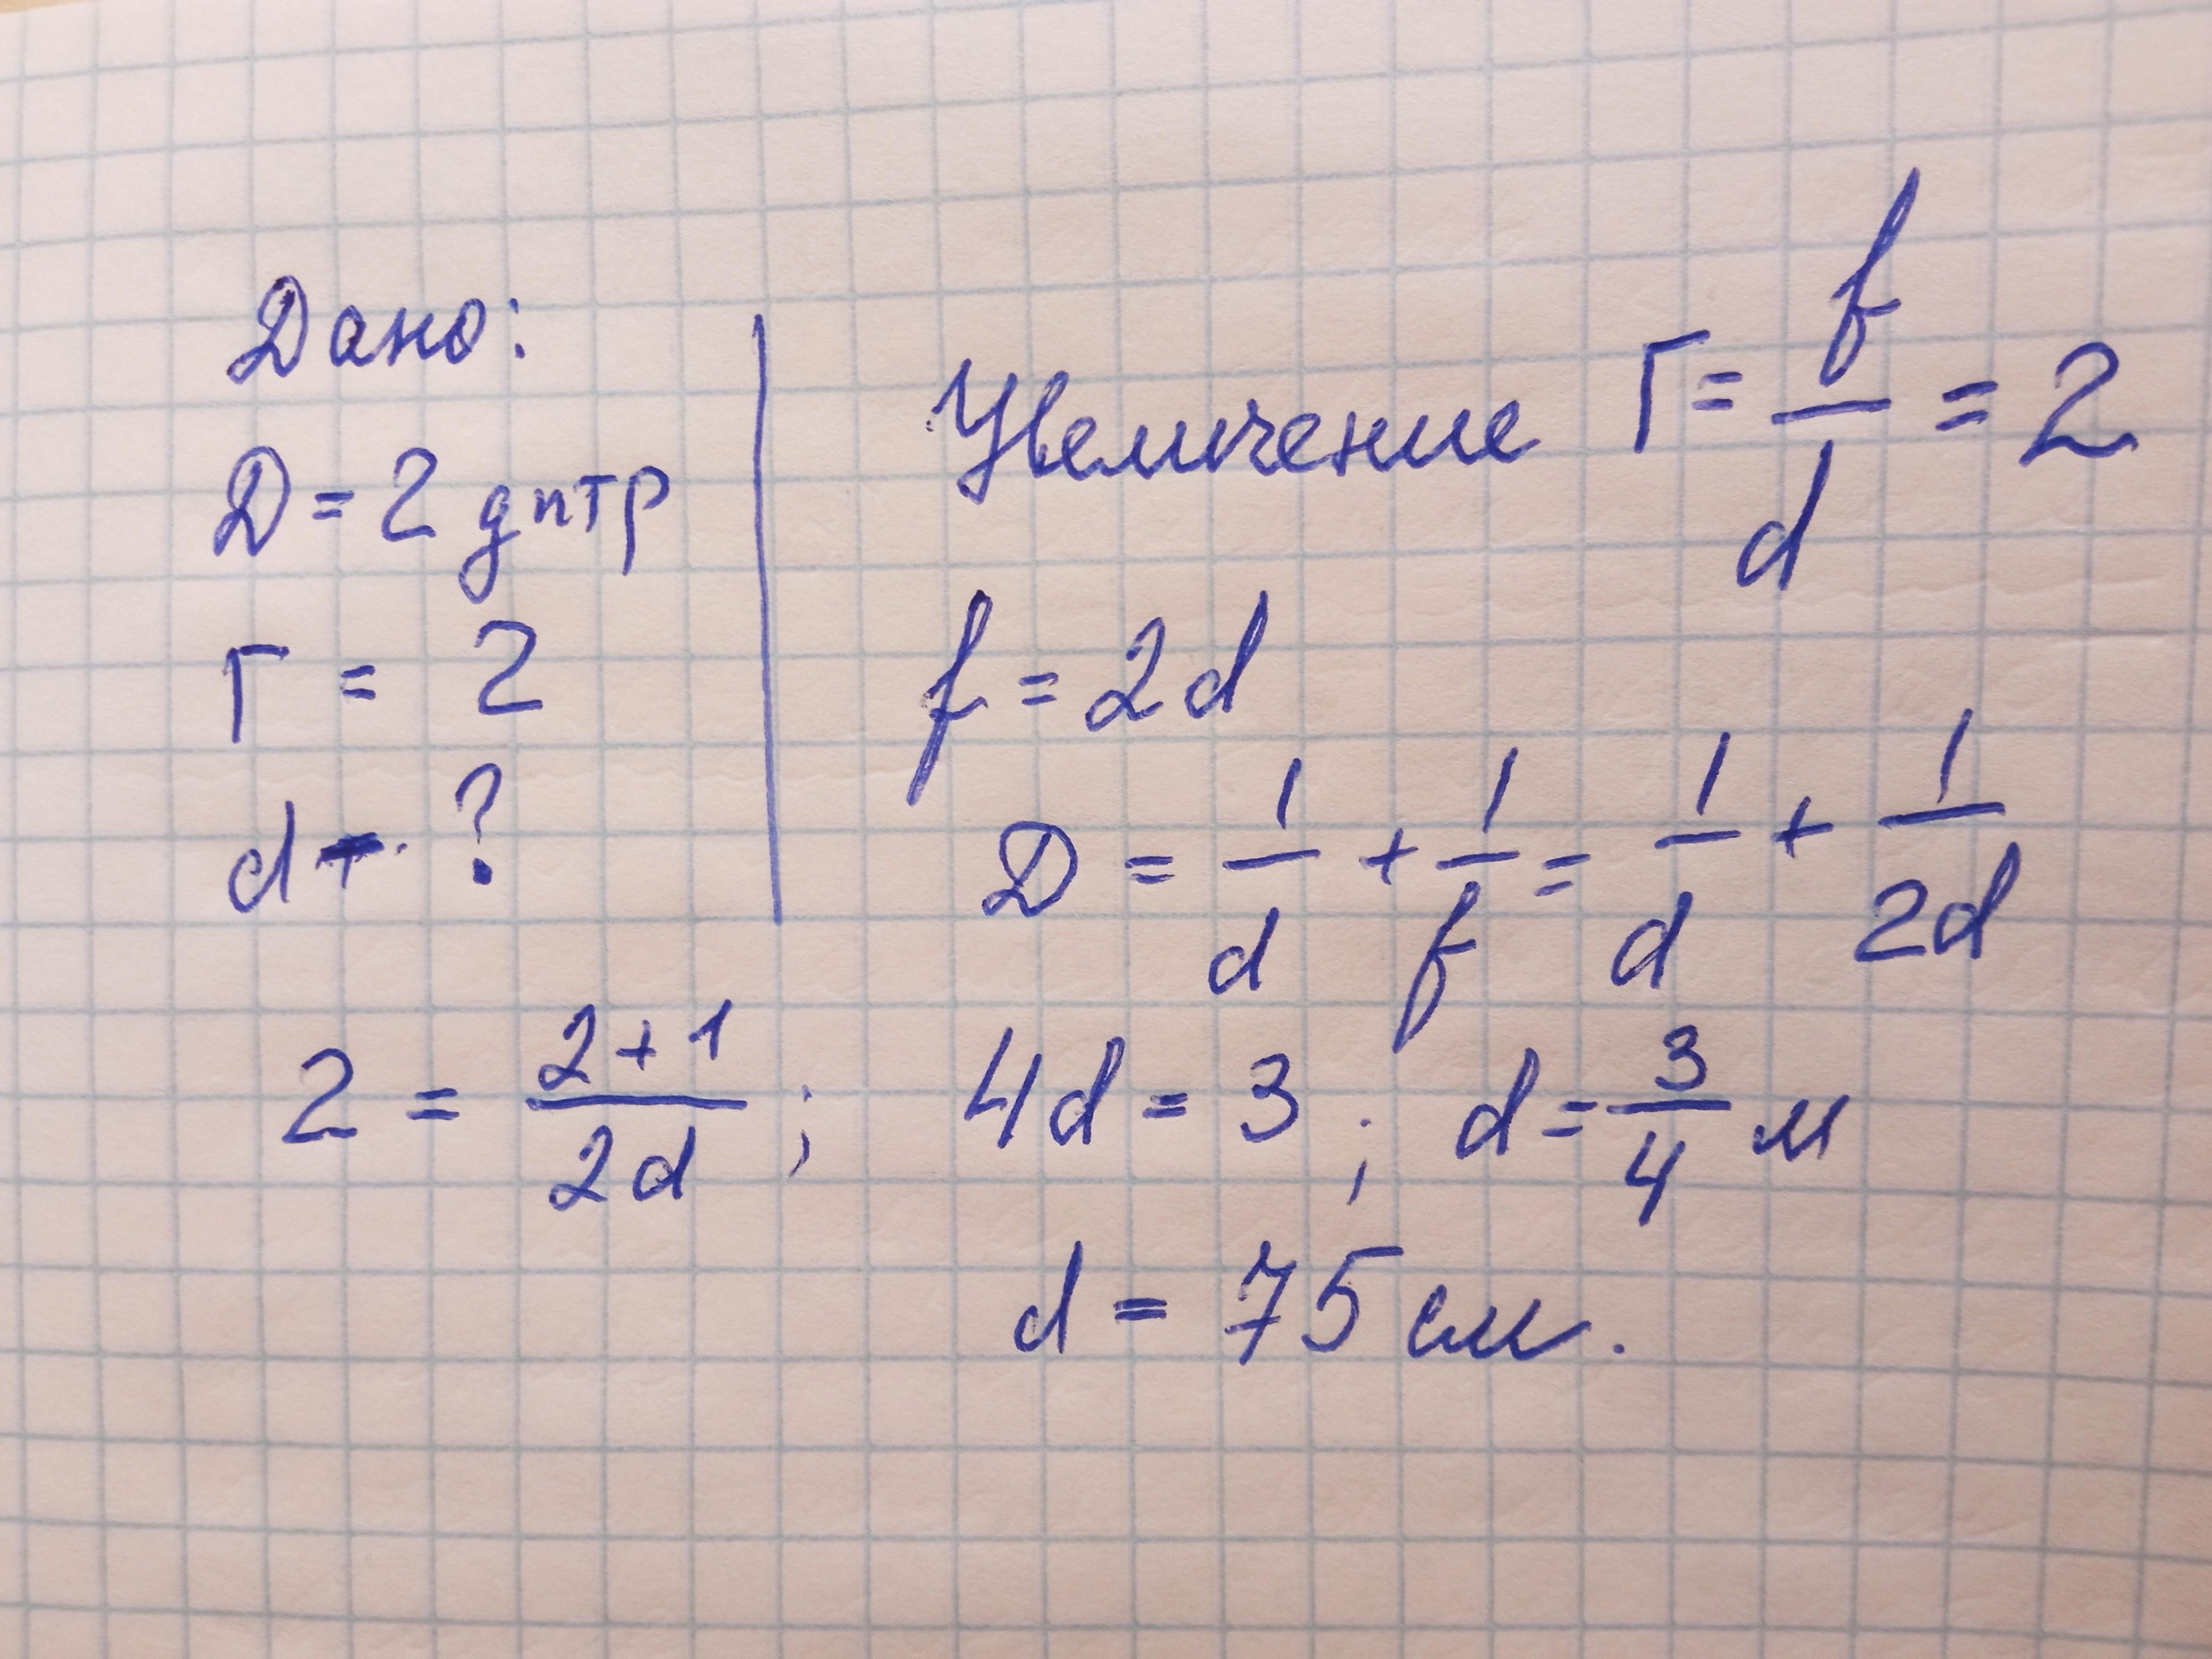 Дано:
D = 2 дптр
Г = 2
d - ?
Увеличение Г = f/d = 2
f = 2d
D = 1/d + 1/f = 1/d + 1/2d
2 = 2+1/2d ; 4d = 3 ; d = 3/4 м
d = 75 см.